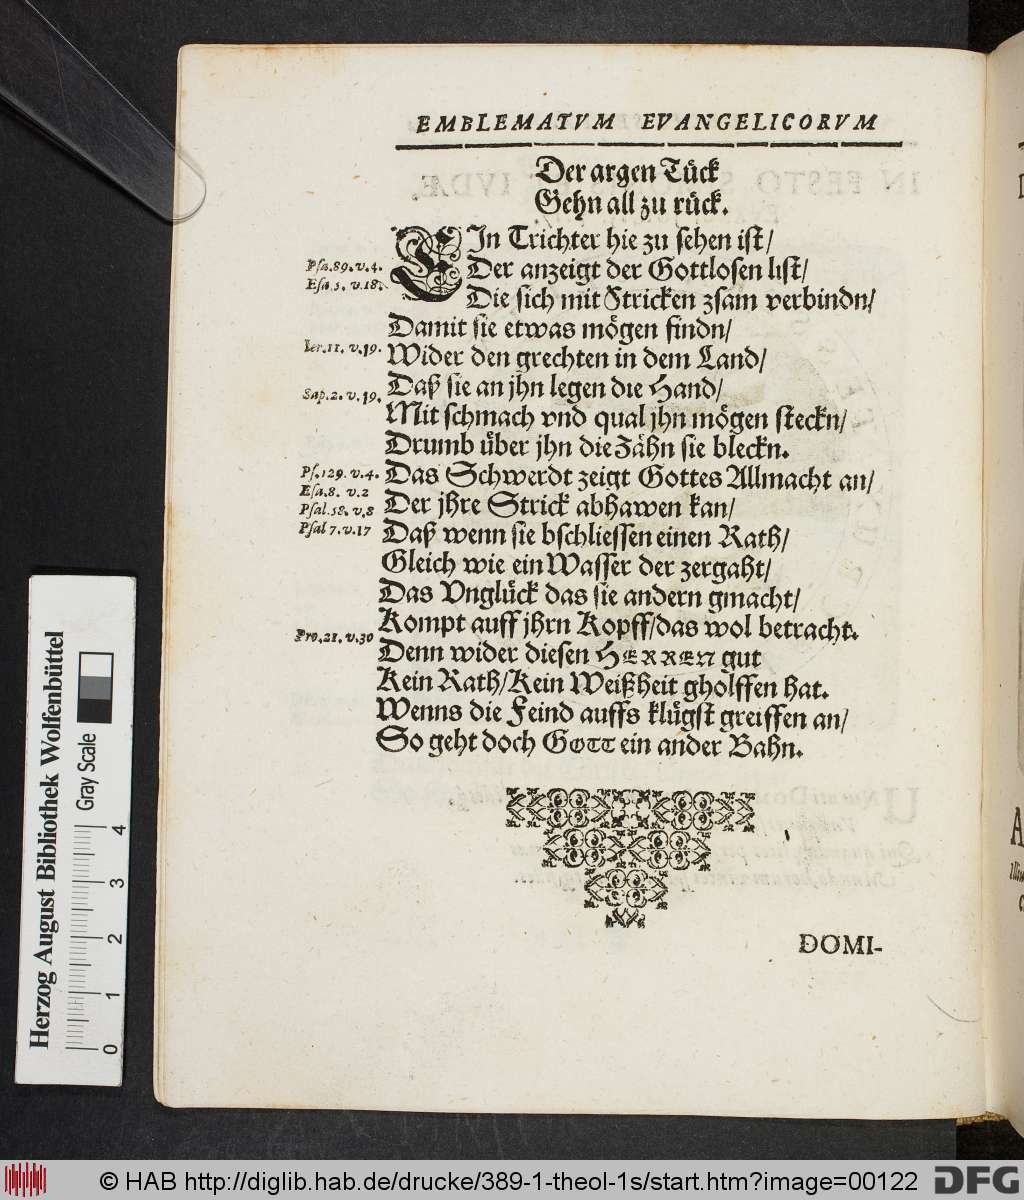 EMBLEMATVM EVANGELICORVM
Der argen Tück
Gehn all zu rück.
EIn Trichter hie zu sehen ist/
Psa.89.v.4.
Der anzeigt der Gottlosen list/
Esa.5.v.18.
Die sich mit Stricken zsam verbindn/
Damit sie etwas mögen findn/
Ier.11.v.19.
Wider den grechten in dem Land/
Daß sie an jhn legen die Hand/
Sap.2.v.19.
Mit schmach vnd qual jhn mögen steckn/
Drumb über jhn die Zähn sie bleckn.
Ps.129.v.4.
Das Schwerdt zeigt Gottes Allmacht an/
Esa.8. v.2
Der jhre Strick abhawen kan/
Psal.58.v.8
Psal 7.v.17
Daß wenn sie bschliessen einen Rath/
Gleich wie ein Wasser der zergaht/
Das Vnglück das sie andern gmacht/
Kompt auff jhrn Kopff/das wol betracht.
Pro.21.v.30
Denn wider diesen HERREN gut
Kein Rath/Kein Weißheit gholffen hat.
Wenns die Feind auffs klügst greiffen an/
So geht doch GOTT ein ander Bahn.
DOMI-
Herzog August Bibliothek Wolfenbüttel
Gray Scale
0 1 2 3 4
© HAB http://diglib.hab.de/drucke/389-1-theol-1s/start.htm?image=00122
DFG